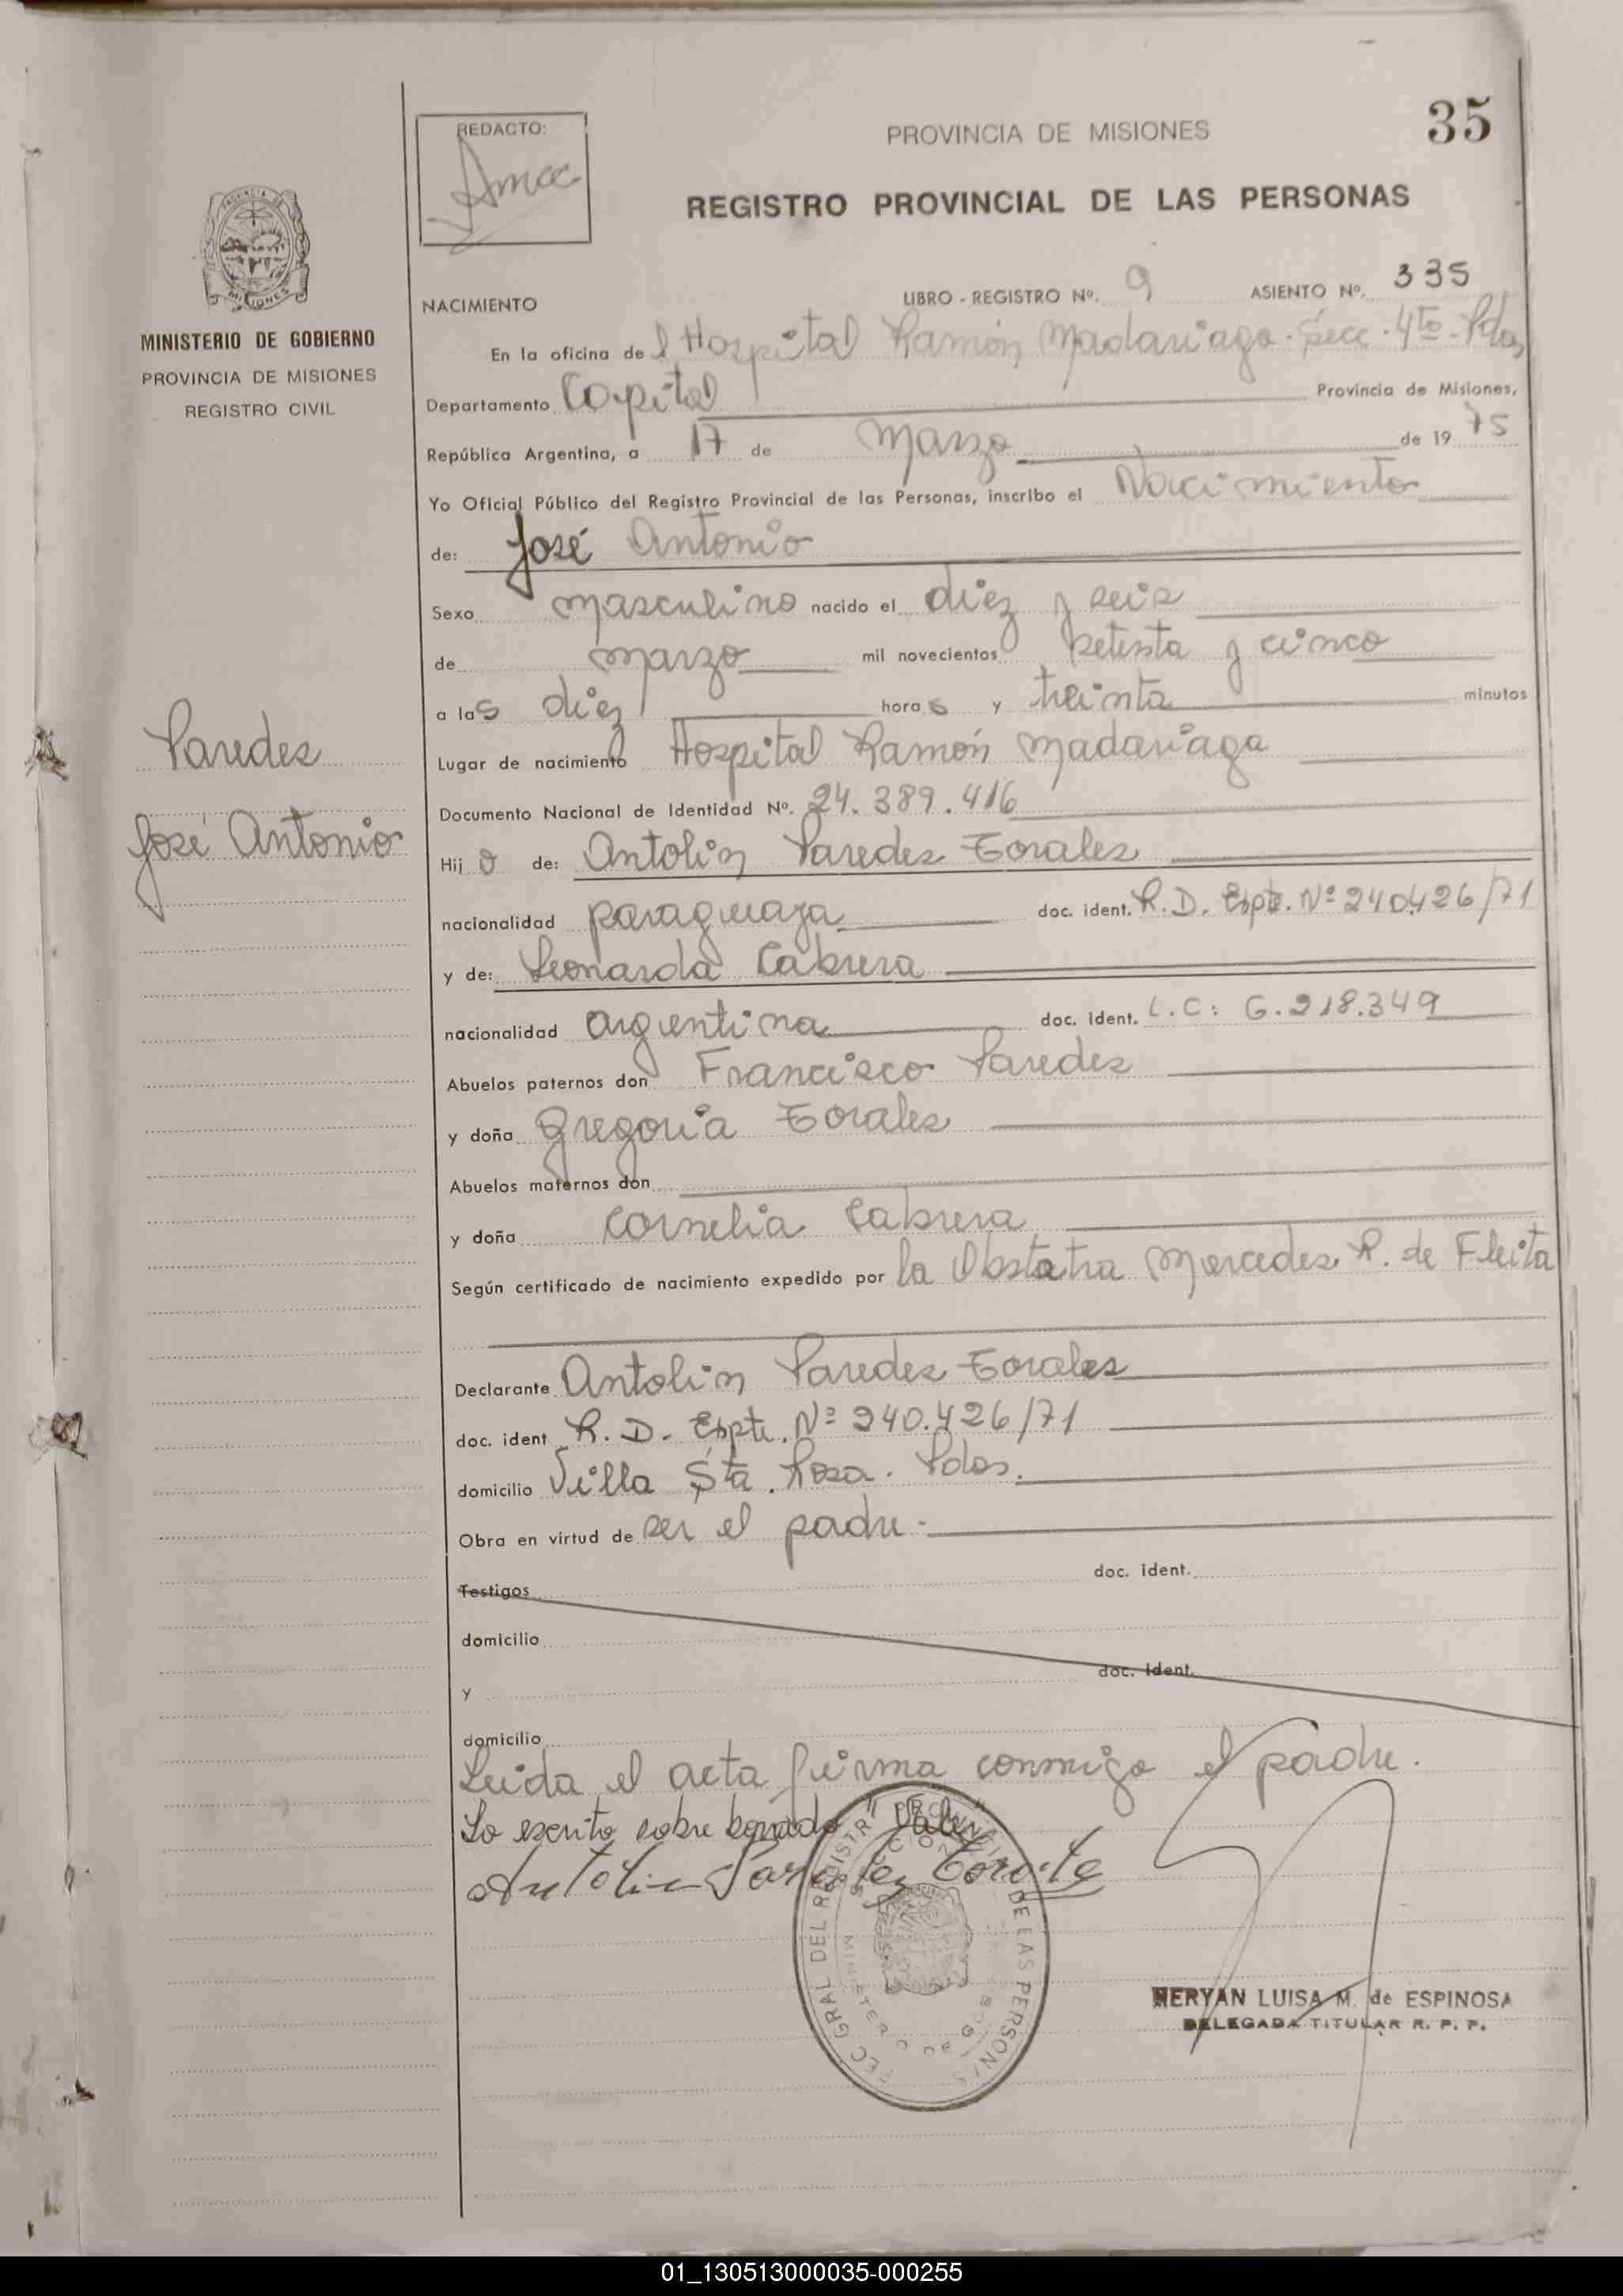 35
REDACTO:
PROVINCIA DE MISIONES
REGISTRO PROVINCIAL DE LAS PERSONAS
MISIONES
MINISTERIO DE GOBIERNO
PROVINCIA DE MISIONES
REGISTRO CIVIL
NACIMIENTO LIBRO - REGISTRO Nº. 9 ASIENTO Nº. 335
En la oficina del Hospital Ramón Madariaga. Secc. 4to - Pdas
Departamento Capital Provincia de Misiones,
República Argentina, a 17 de Marzo de 19 75
Yo Oficial Público del Registro Provincial de las Personas, inscribo el Nacimiento
de: José Antonio
Sexo masculino nacido el diez y seis
de marzo mil novecientos setenta y cinco
a las diez horas y treinta minutos
Lugar de nacimiento Hospital Ramón Madariaga
Documento Nacional de Identidad Nº. 24.389.416
Hijo de: Antolín Paredes Torales
nacionalidad paraguaya doc. ident. R.D. Expte. Nº 240.426/71
y de: Leonarda Cabrera
nacionalidad argentina doc. ident. L.C: 6.218.349
Abuelos paternos don Francisco Paredes
y doña Gregoria Torales
Abuelos maternos don
y doña Cornelia Cabrera
Según certificado de nacimiento expedido por la Obstatra Mercedes R. de Fleita
Declarante Antolín Paredes Torales
doc. ident R.D. Expte. Nº 240.426/71
domicilio Villa Sta. Rosa. Pdas.
Obra en virtud de ser el padre.
Testigos doc. ident.
domicilio
y doc. ident.
domicilio
Leida el acta firma conmigo el padre.
Lo escrito sobre borrado "Vale"
Antolin Paredez
Paredes
José Antonio
GRAL DEL REGISTR PROVINCIAL DE LAS PERSONAS
NERYAN LUISA M. de ESPINOSA
DELEGADA TITULAR R. P. P.
01_130513000035-000255